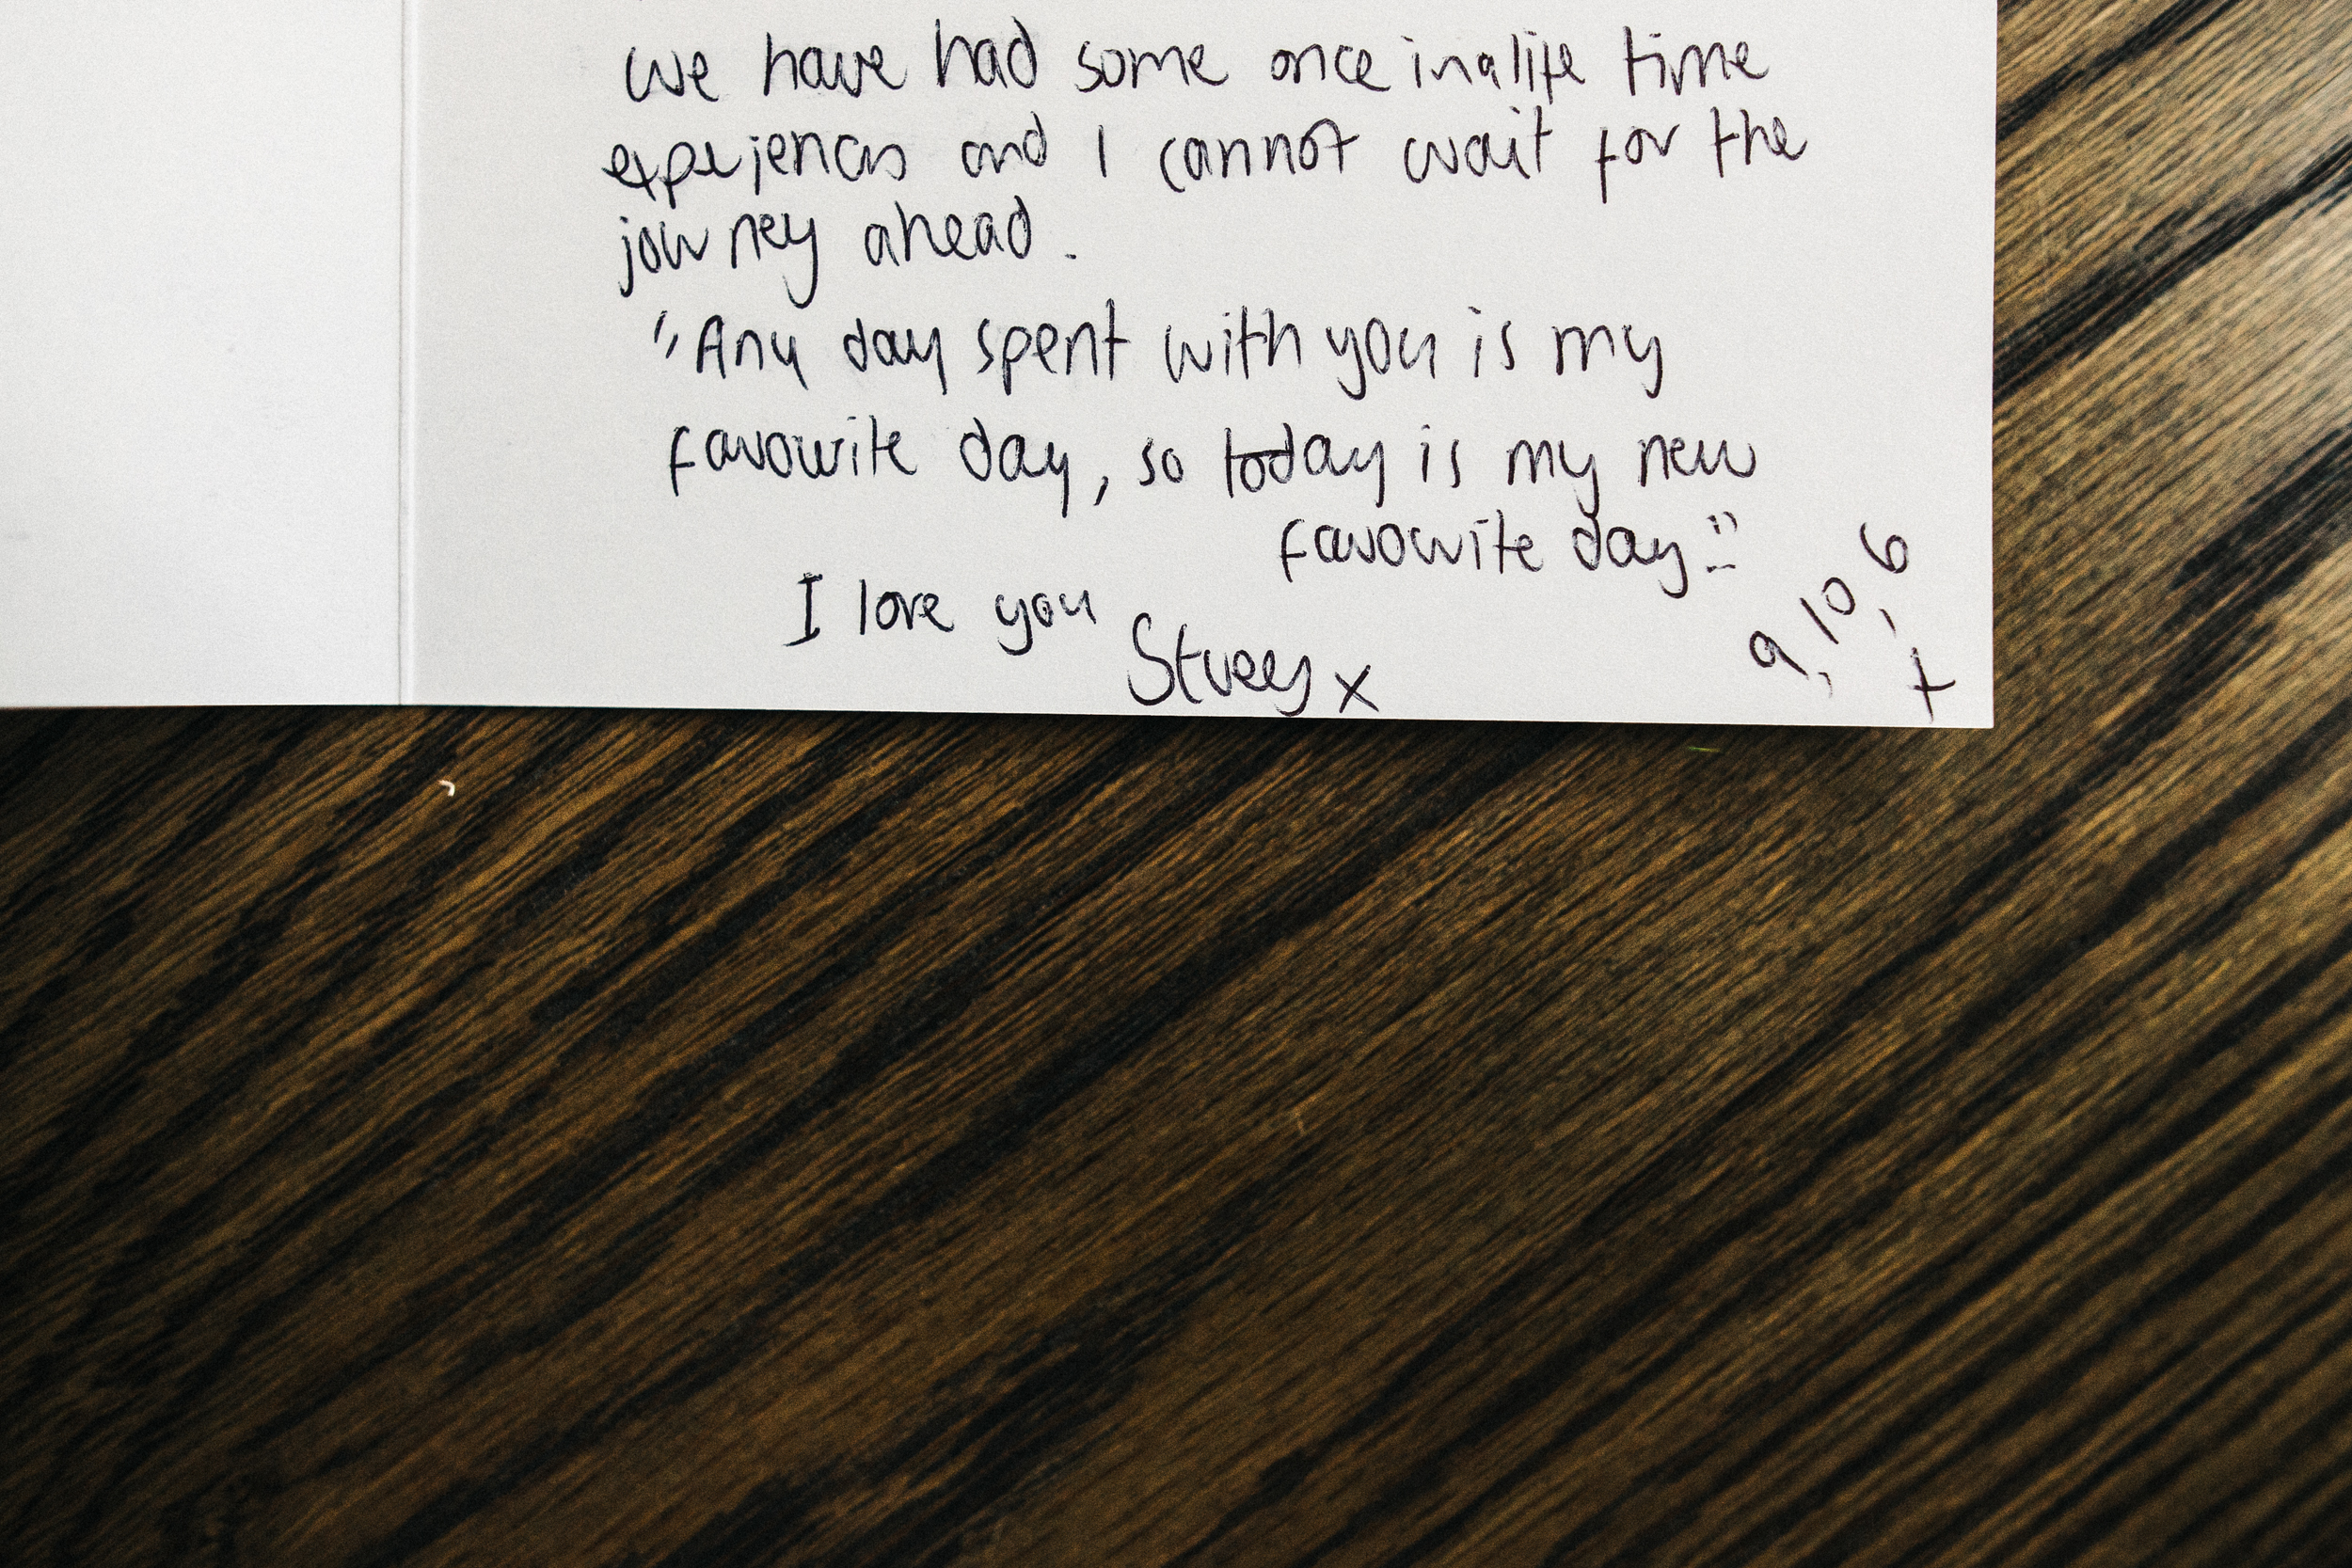 we have had some once in a life time
experiences and I cannot wait for the
journey ahead.
"Any day spent with you is my
favourite day, so today is my new
favourite day!"
I love you
Stuey x
9, 10, 6
x